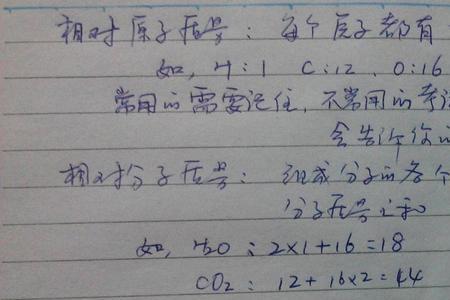 相对原子质量：每个原子都有
如，H：1 C：12、O：16
常用的需要记住，不常用的考试
会告诉你的
相对分子质量：组成分子的各个
分子质量之和
如，H2O：2×1+16=18
CO2：12+16×2=44